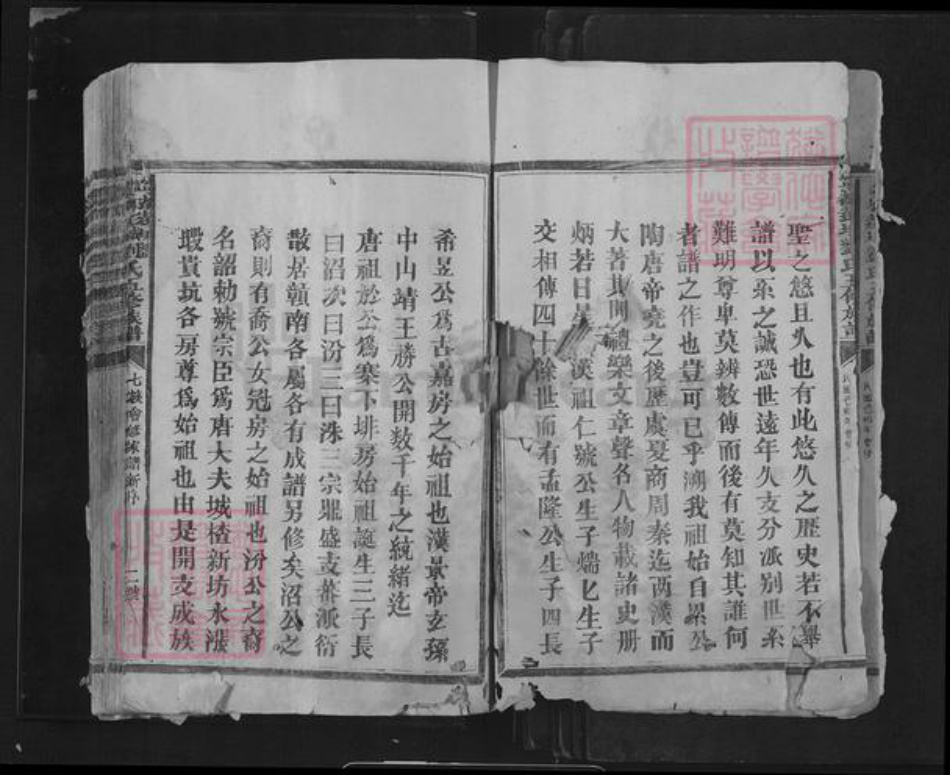 聖之悠且久也有此悠久之歷史若不舉
譜以系之誠恐世遠年久支分派別世系
難明尊卑莫辨數傳而後有莫知其誰何
者譜之作也豈可已乎溯我祖始自累公
陶唐帝堯之後歷虞夏商周秦迄兩漢而
大著其間禮樂文章聲名人物載諸史册
炳若日星 漢祖仁號公生子煓煓生子
交相傳四十餘世而有孟隆公生子四長
希昱公爲古嘉房之始祖也漢景帝玄孫
中山靖王勝公開數千年之統緒迄
唐祖於公爲寨下排房始祖誕生三子長
曰沼次曰汾三曰洙三宗鼎盛支蕃派衍
散居贛南各屬各有成譜另修矣沼公之
裔則有喬公女冠房之始祖也汾公之裔
名韶勅號宗臣爲唐大夫城楂新坊水漲
瑕貢坑各房尊爲始祖也由是開支成族
氏五修族譜
七嶽會修珠譜新序